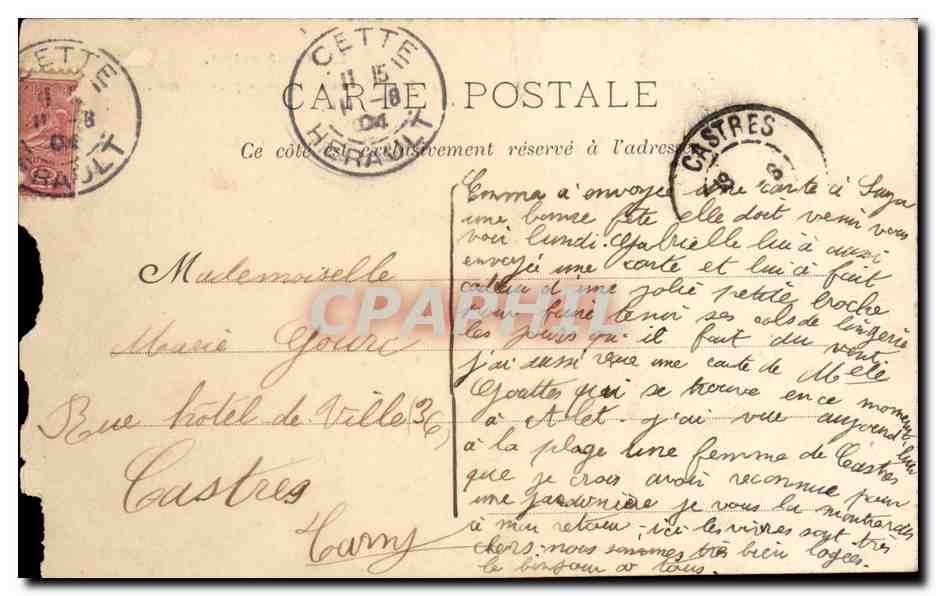 CETTE
11
-8
04
HERAULT
CETTE
11 15
11 -8
04
HERAULT
CARTE POSTALE
Ce côté est exclusivement réservé à l'adresse
CASTRES
8
Mademoiselle
Marie Gourc
Rue hôtel de Ville (36)
Castres
Tarn
Emma a envoyée une carte à Suza
une bonne fête elle doit venir vous
voir lundi. Gabrielle lui a aussi
envoyée une carte et lui a fait
cadeau d'une jolie petite broche
pour faire tenir ses cols de lingerie
les jours qu'il fait du vent
j'ai aussi reçue une carte de Melle
Gouttes qui se trouve en ce moment
à Alet. j'ai vue aujourd'hui
à la plage une femme de Castres
que je crois avoir reconnue pour
une jardinière je vous la montrerais
à mon retour, ici les vivres sont très
chers. nous sommes très bien logées.
le bonsoir à tous.
CPAPHIL